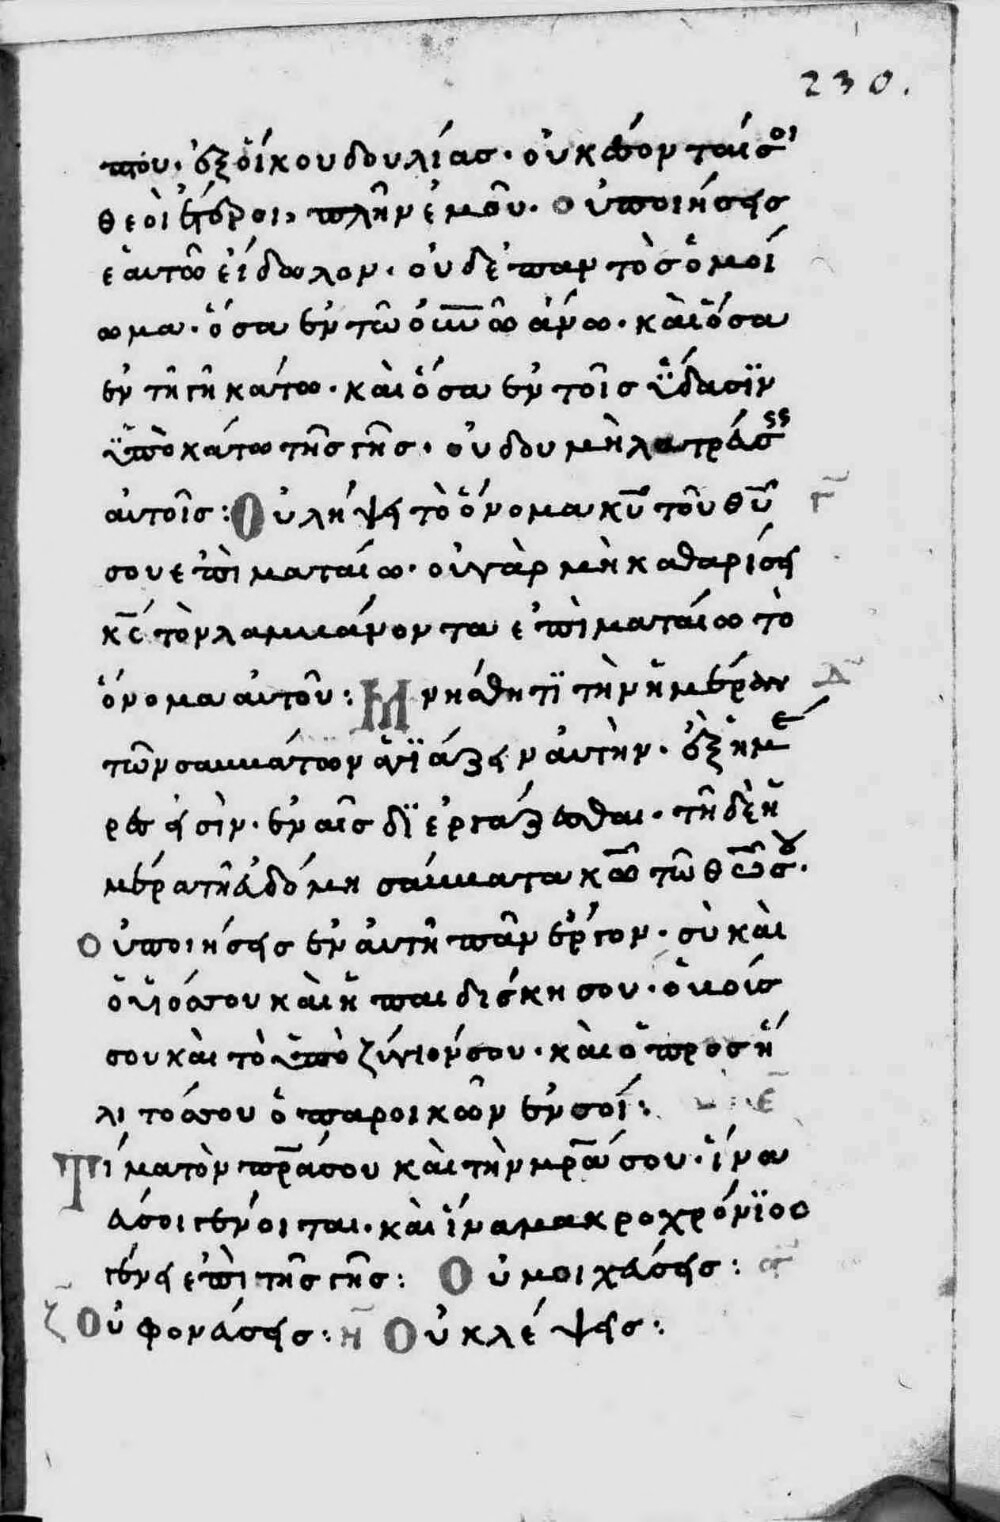 230.
που· ἐξ οἴκου δουλίασ· οὐκ ἔσονταί σοι
θεοὶ ἕτεροι, πλὴν ἐμοῦ· οὐ ποιήσεισ
ἑαυτῶ εἴδωλον· οὐδὲ παντὸσ ὁμοί
ωμα· ὅσα ἐν τῶ οὐνῶ ἄνω· καὶ ὅσα
ἐν τῆ γῆ κάτω· καὶ ὅσα ἐν τοῖσ ὕδασϊν
ὑπὸκάτω τῆσ γῆσ· οὐ δου μὴ λατρεύσεισ
αὐτοῖσ: Οὐ λήψει τὸ ὄνομα κυ τοῦ θυ Γ
σου ἐπὶ ματαίω· οὐ γὰρ μὴ καθαρίσει
κσ τὸν λαμβάνοντα ἐπὶ ματαίω τὸ
ὄνομα αὐτοῦ: Μνήσθητϊ τὴν ἡμέραν Δ
τῶν σαββάτων ἁγϊάζειν αὐτὴν· ἓξ ἡμέ
ρασ εἰσὶν· ἐν αἷσ δϊ ἐργάζεσθαι· τῆ δὲ ἡ
μέρα τῆ ἑβδόμη σάββατα κω τῶ θω σου·
οὐ ποιήσεισ ἐν αὐτῆ πᾶν ἔργον· σὺ καὶ
ὁ υἱόσ σου καὶ ἡ παιδίσκη σου· ὁ βοῦσ
σου καὶ τὸ ὑπὸζύγιόν σου· καὶ ὁ προσή
λιτόσ σου ὁ παροικῶν ἐν σοί: Ε
Τίμα τὸν πρα σου καὶ τὴν μρα σου· ἵνα
εὖ σοι γένοιται· καὶ ἵνα μακροχρόνϊοσ
γένει ἐπὶ τῆσ γῆσ: Οὐ μοιχεύσεισ: ς
ζ Οὐ φονεύσεισ: η Οὐ κλέψεισ: